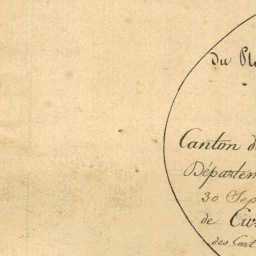 du Pl
Canton d
Départem
30 Sep
de Civ
des Cart